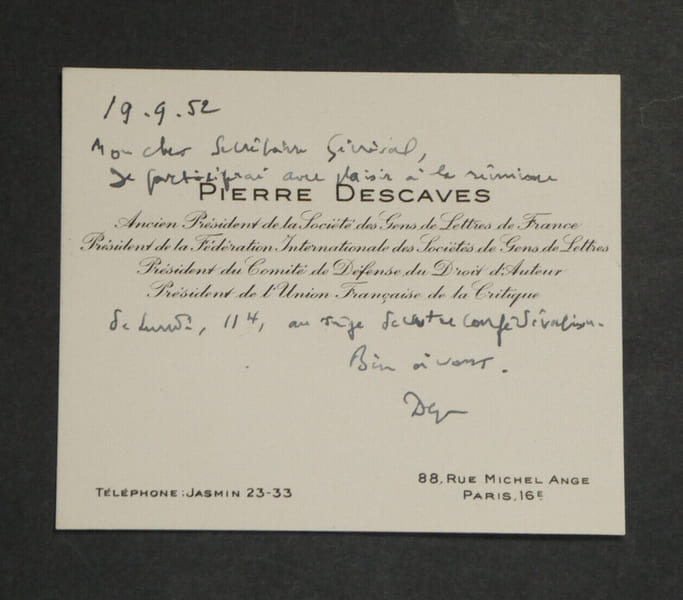 19.9.52
Mon cher Secrétaire Général,
Je participerai avec plaisir à la réunion
PIERRE DESCAVES
Ancien Président de la Société des Gens de Lettres de France
Président de la Fédération Internationale des Sociétés de Gens de Lettres
Président du Comité de Défense du Droit d'Auteur
Président de l'Union Française de la Critique
de Lundi, 11H, au siège de votre Confédération.
Bien à vous.
TÉLÉPHONE: JASMIN 23-33
88, RUE MICHEL ANGE
PARIS, 16E